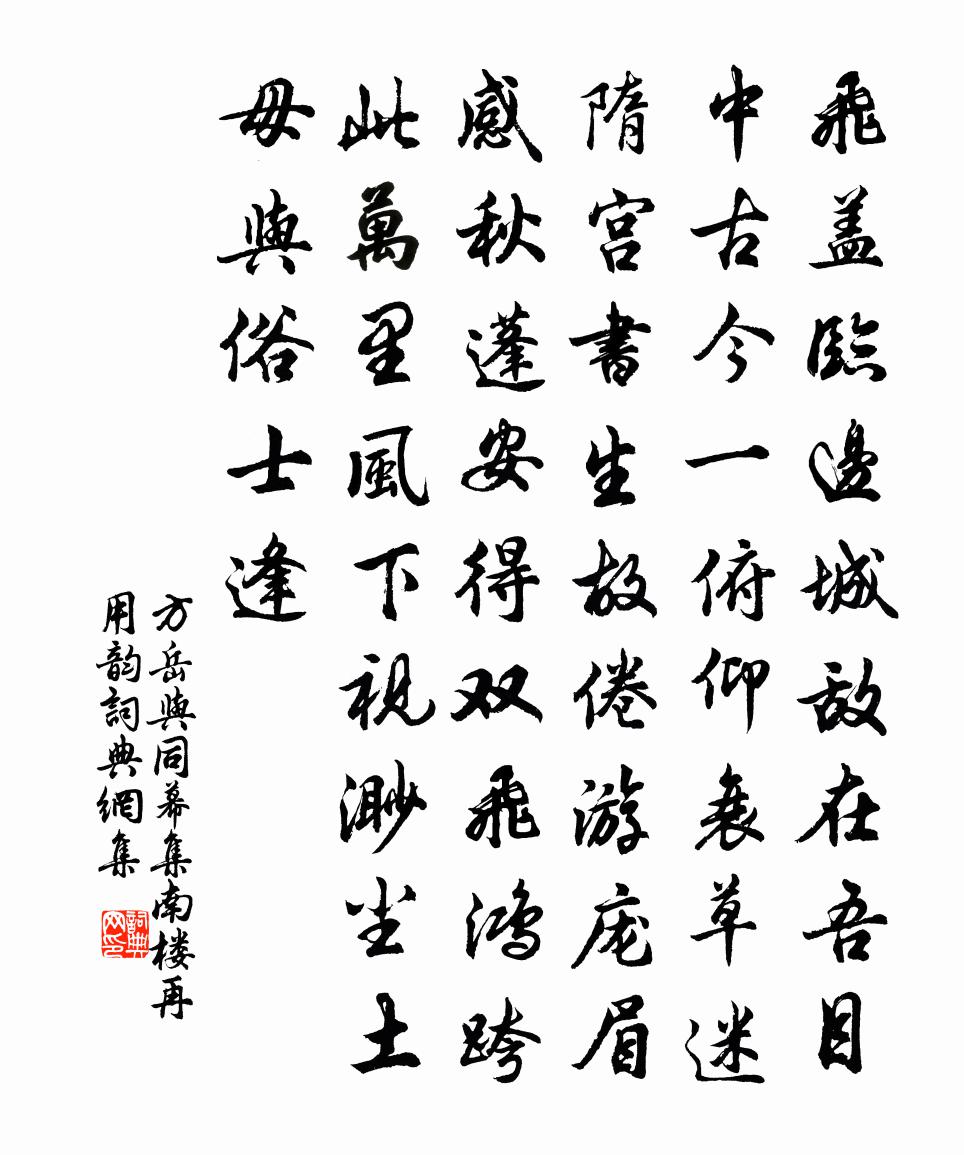 飛盖臨邊城敌在吾目
中古今一俯仰衰草迷
隋宫書生故倦游庞眉
感秋蓬安得双飛鴻跨
此萬里風下視渺尘土
毋與俗士逢
方岳與同幕集南楼再
用韵詞典網集
詞典网印